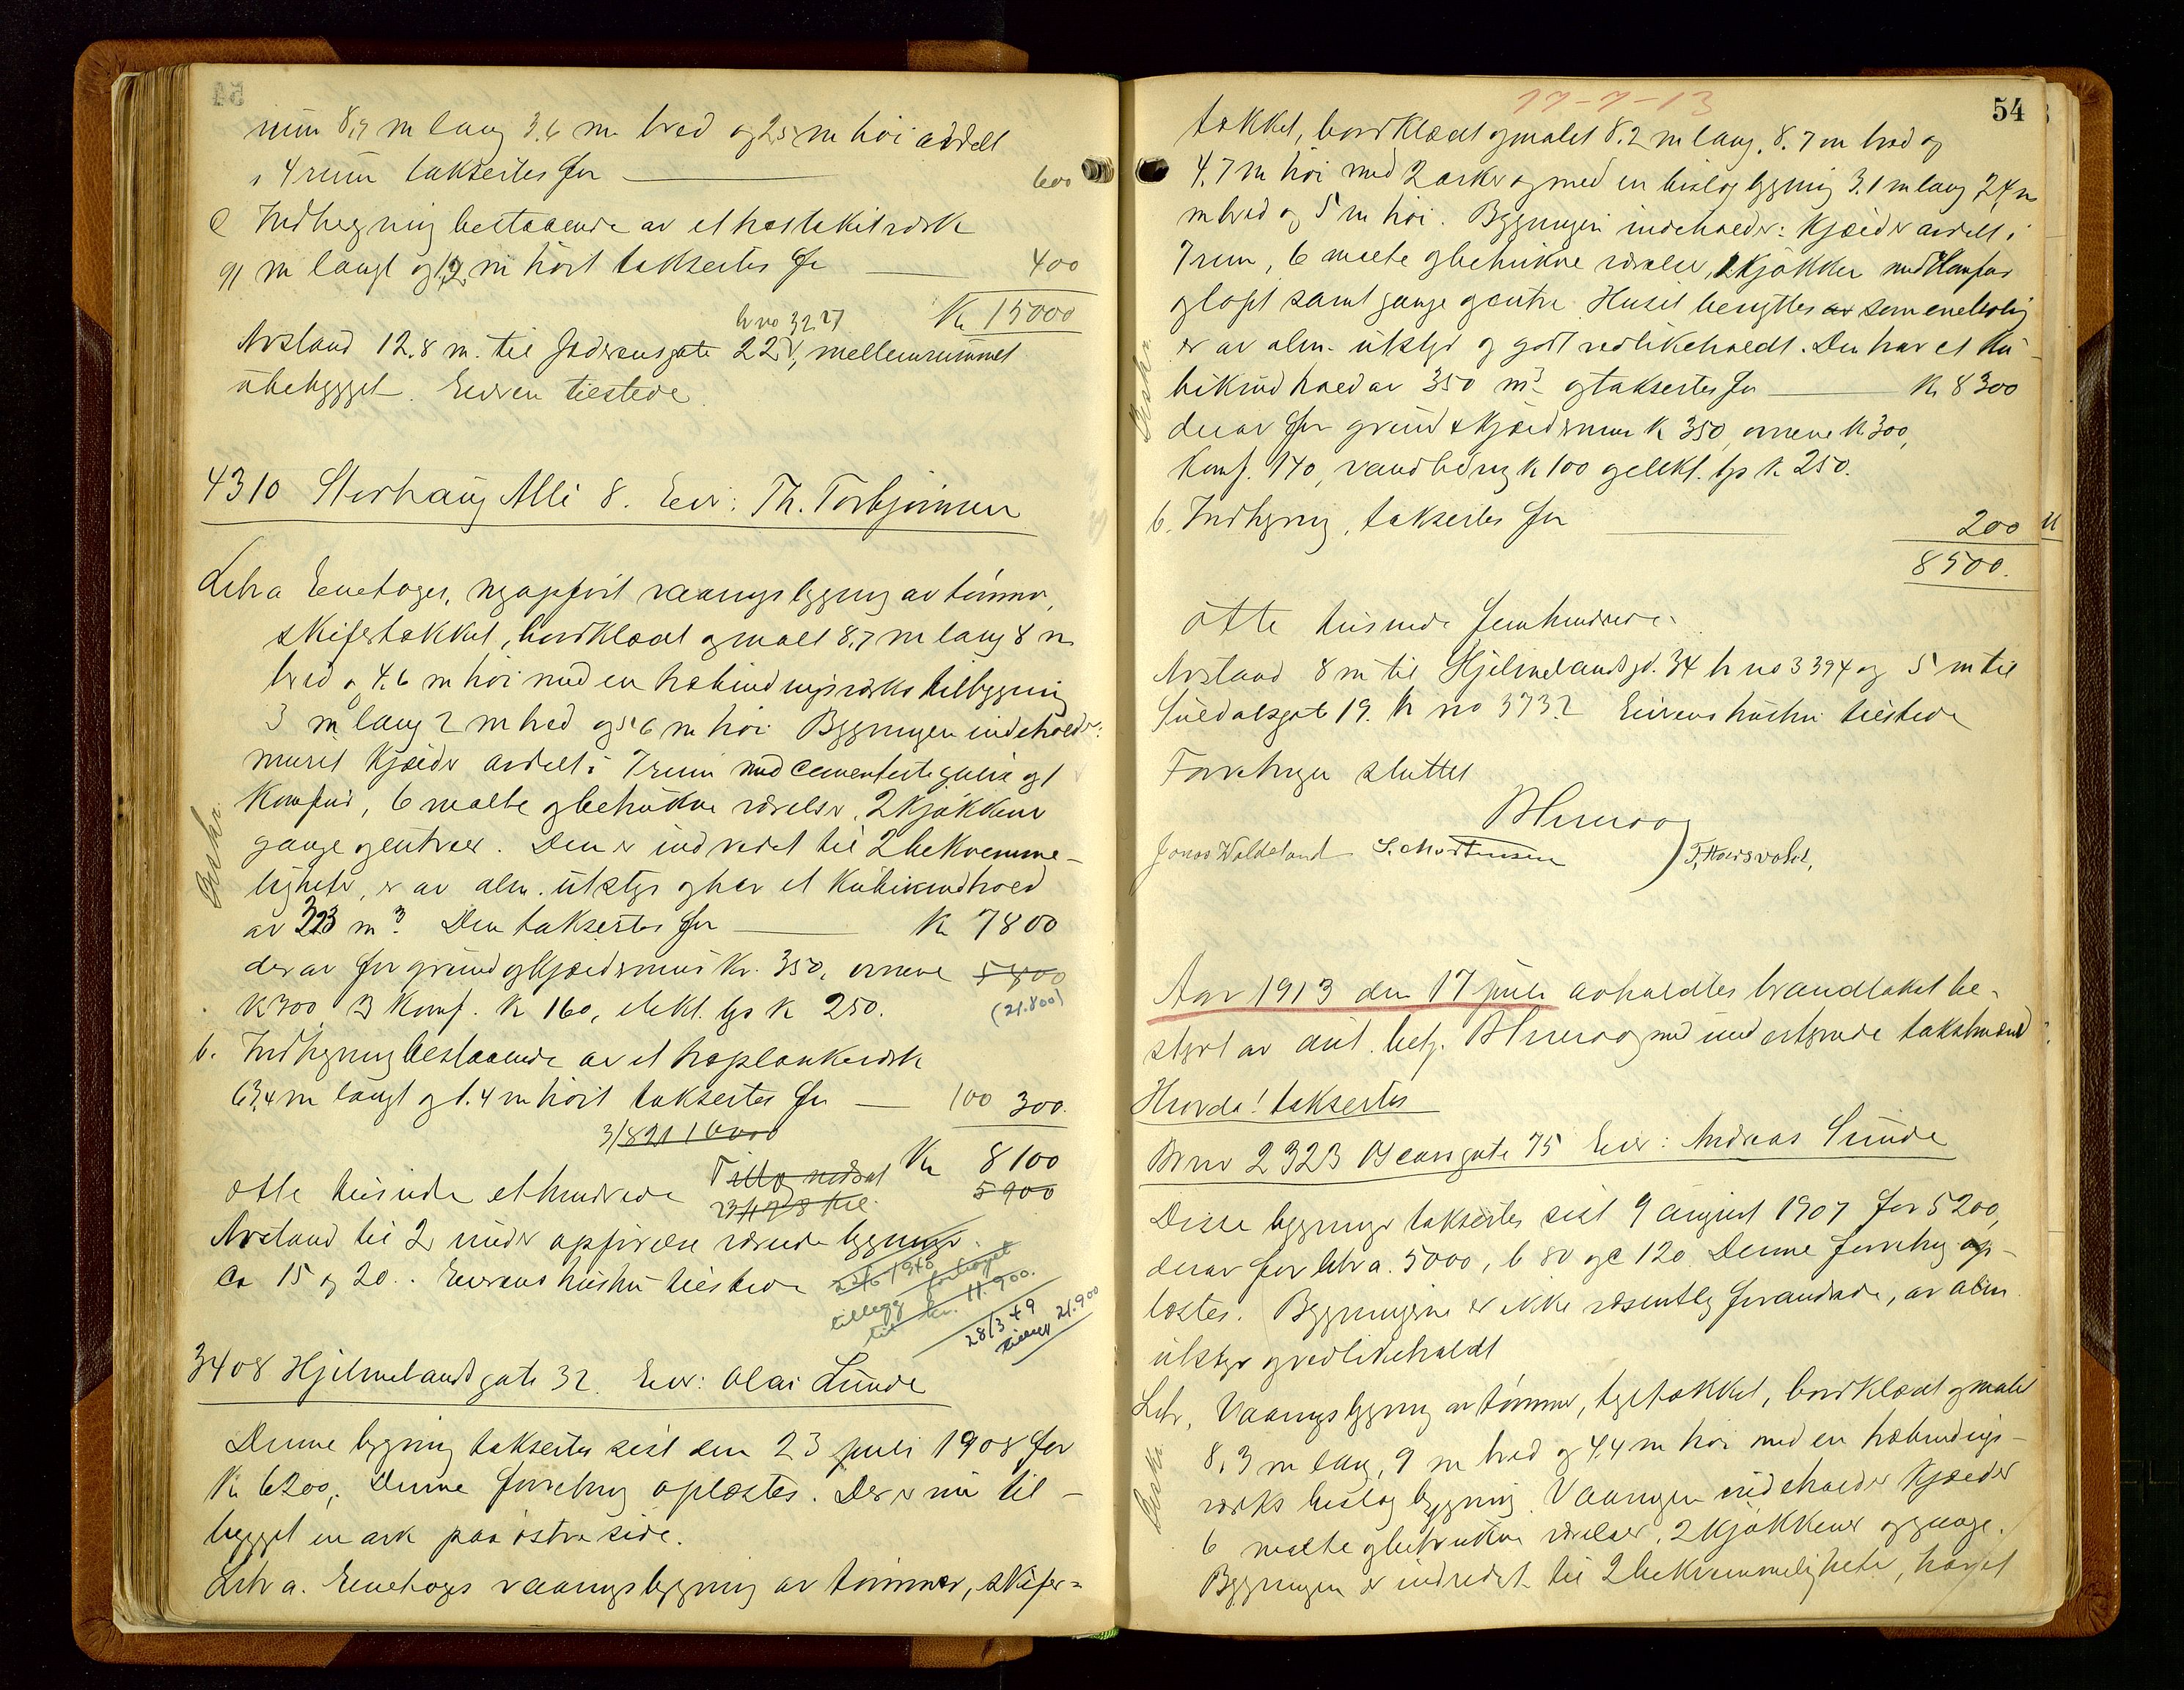 rum 8,7 m lang 3.6 m bred og 2,5 m høi avdelt
i 4 rum taksertes for 600
c Indhegning bestaaende av et træstakitværk
91 m langt og 1,2 m høit taksertes for 400
Kr 15000
br no 3227
Avstand 12.8 m. til Jødersensgate 22, mellemrummet
ubebygget. Eieren tilstede
4310 Storhaug Allé 8. Eier: Th. Torbjørnsen
Litra a Enetages, nyopført vaaningsbygning av tømmer,
skifertækket, bordklædt og malt 8,7 m lang 8 m
bred og 4,6 m høi med en træbindingsværks tilbygning
3 m lang 2 m bred og 5,6 m høi. Bygningen indeholder:
muret kjælder avdelt i 7 rum med cementerte gulve og 1
Komfur, 6 malte og betrukne værelser, 2 kjøkkener
gange og entreer. Den er indredet til 2 bekvemme-
ligheter, er av alm. utstyr og har et kubikindhold
av 323 m³ Den taksertes for Kr 7800
derav for grund og kjældermur Kr. 350, ovnene 5800
Kr 300 3 Komf. Kr 160, elekt. lys Kr 250. (21.800)
b. Indhegning bestaaende av et træplankeværk
63,4 m langt og 1.4 m høit taksertes for 100 300.
3/8 21 10000
Kr 8100
otte tusinde et hundrede Tillæg nedsat 5900
23/11 28 til
Avstand til 2 under opførelse værende bygninger
Ca 15 og 20. Eierens hustru tilstede
22/6 1940 forhøiet
tillegg
til kr. 11.900.
28/3 49
tillegg 21.900
3408 Hjelmelandsgate 32. Eier: Olai Lunde
Denne bygning taksertes sist den 23 juli 1908 for
Kr 6200, Denne forretning oplæstes. Der er nu til-
bygget en ark paa østre side.
Litra a. Enetages vaaningsbygning av tømmer, skifer-
17-7-13
54
tækket, bordklædt og malet 8.2 m lang, 8.7 m bred og
4.7 m høi med 2 arker og med en bislagbygning 3.1 m lang 2,4 m
m bred og 5 m høi. Bygningen indeholder: Kjælder avdelt i
7 rum, 6 malte og betrukne værelser, 2 kjøkken med Komfur
og loft samt gange og entre. Huset benyttes av som enebolig
er av alm. utstyr og godt vedlikeholdt. Den har et ku-
bikindhold av 350 m³ og taksertes for Kr 8300
derav for grund & kjældermur Kr 350, ovnene Kr 300,
Komf. 140, vandledning Kr 100 og elekt. lys Kr 250.
b. Indhegning, taksertes for 200
8500.
otte tusinde femhundrede.
Avstand 8 m til Hjelmelandsgt. 34 br no 3394 og 5 m til
Suldalsgate 19. Br no 3732 Eierens hustru tilstede
Forretningen sluttet
Jonas Waldeland S. Mortensen
Aar 1913 den 17 juli avholdtes brandtakst be-
styrt av aut. betj. med undertegnede takstmænd
Hvorda! taksertes
Br no 2323 Oscarsgate 75 Eier: Andreas Sunde
Disse bygninger taksertes sist 9 august 1907 for 5200,
derav for litra a. 5000, b 80 og c 120. Denne forretning op-
læstes. Bygningerne er ikke væsentlig forandrede, av alm.
utstyr og vedlikeholdt
Litr. Vaaningsbygning av tømmer, tegltækket, bordklædt og malet
8,3 m lang, 9 m bred og 4,4 m høi med en træbindings-
værks bislagbygning. Vaaningen indeholder Kjælder
6 malte og betrukne værelser, 2 kjøkkener og gange.
Bygningen er indredet til 2 bekvemmeligheter, har et